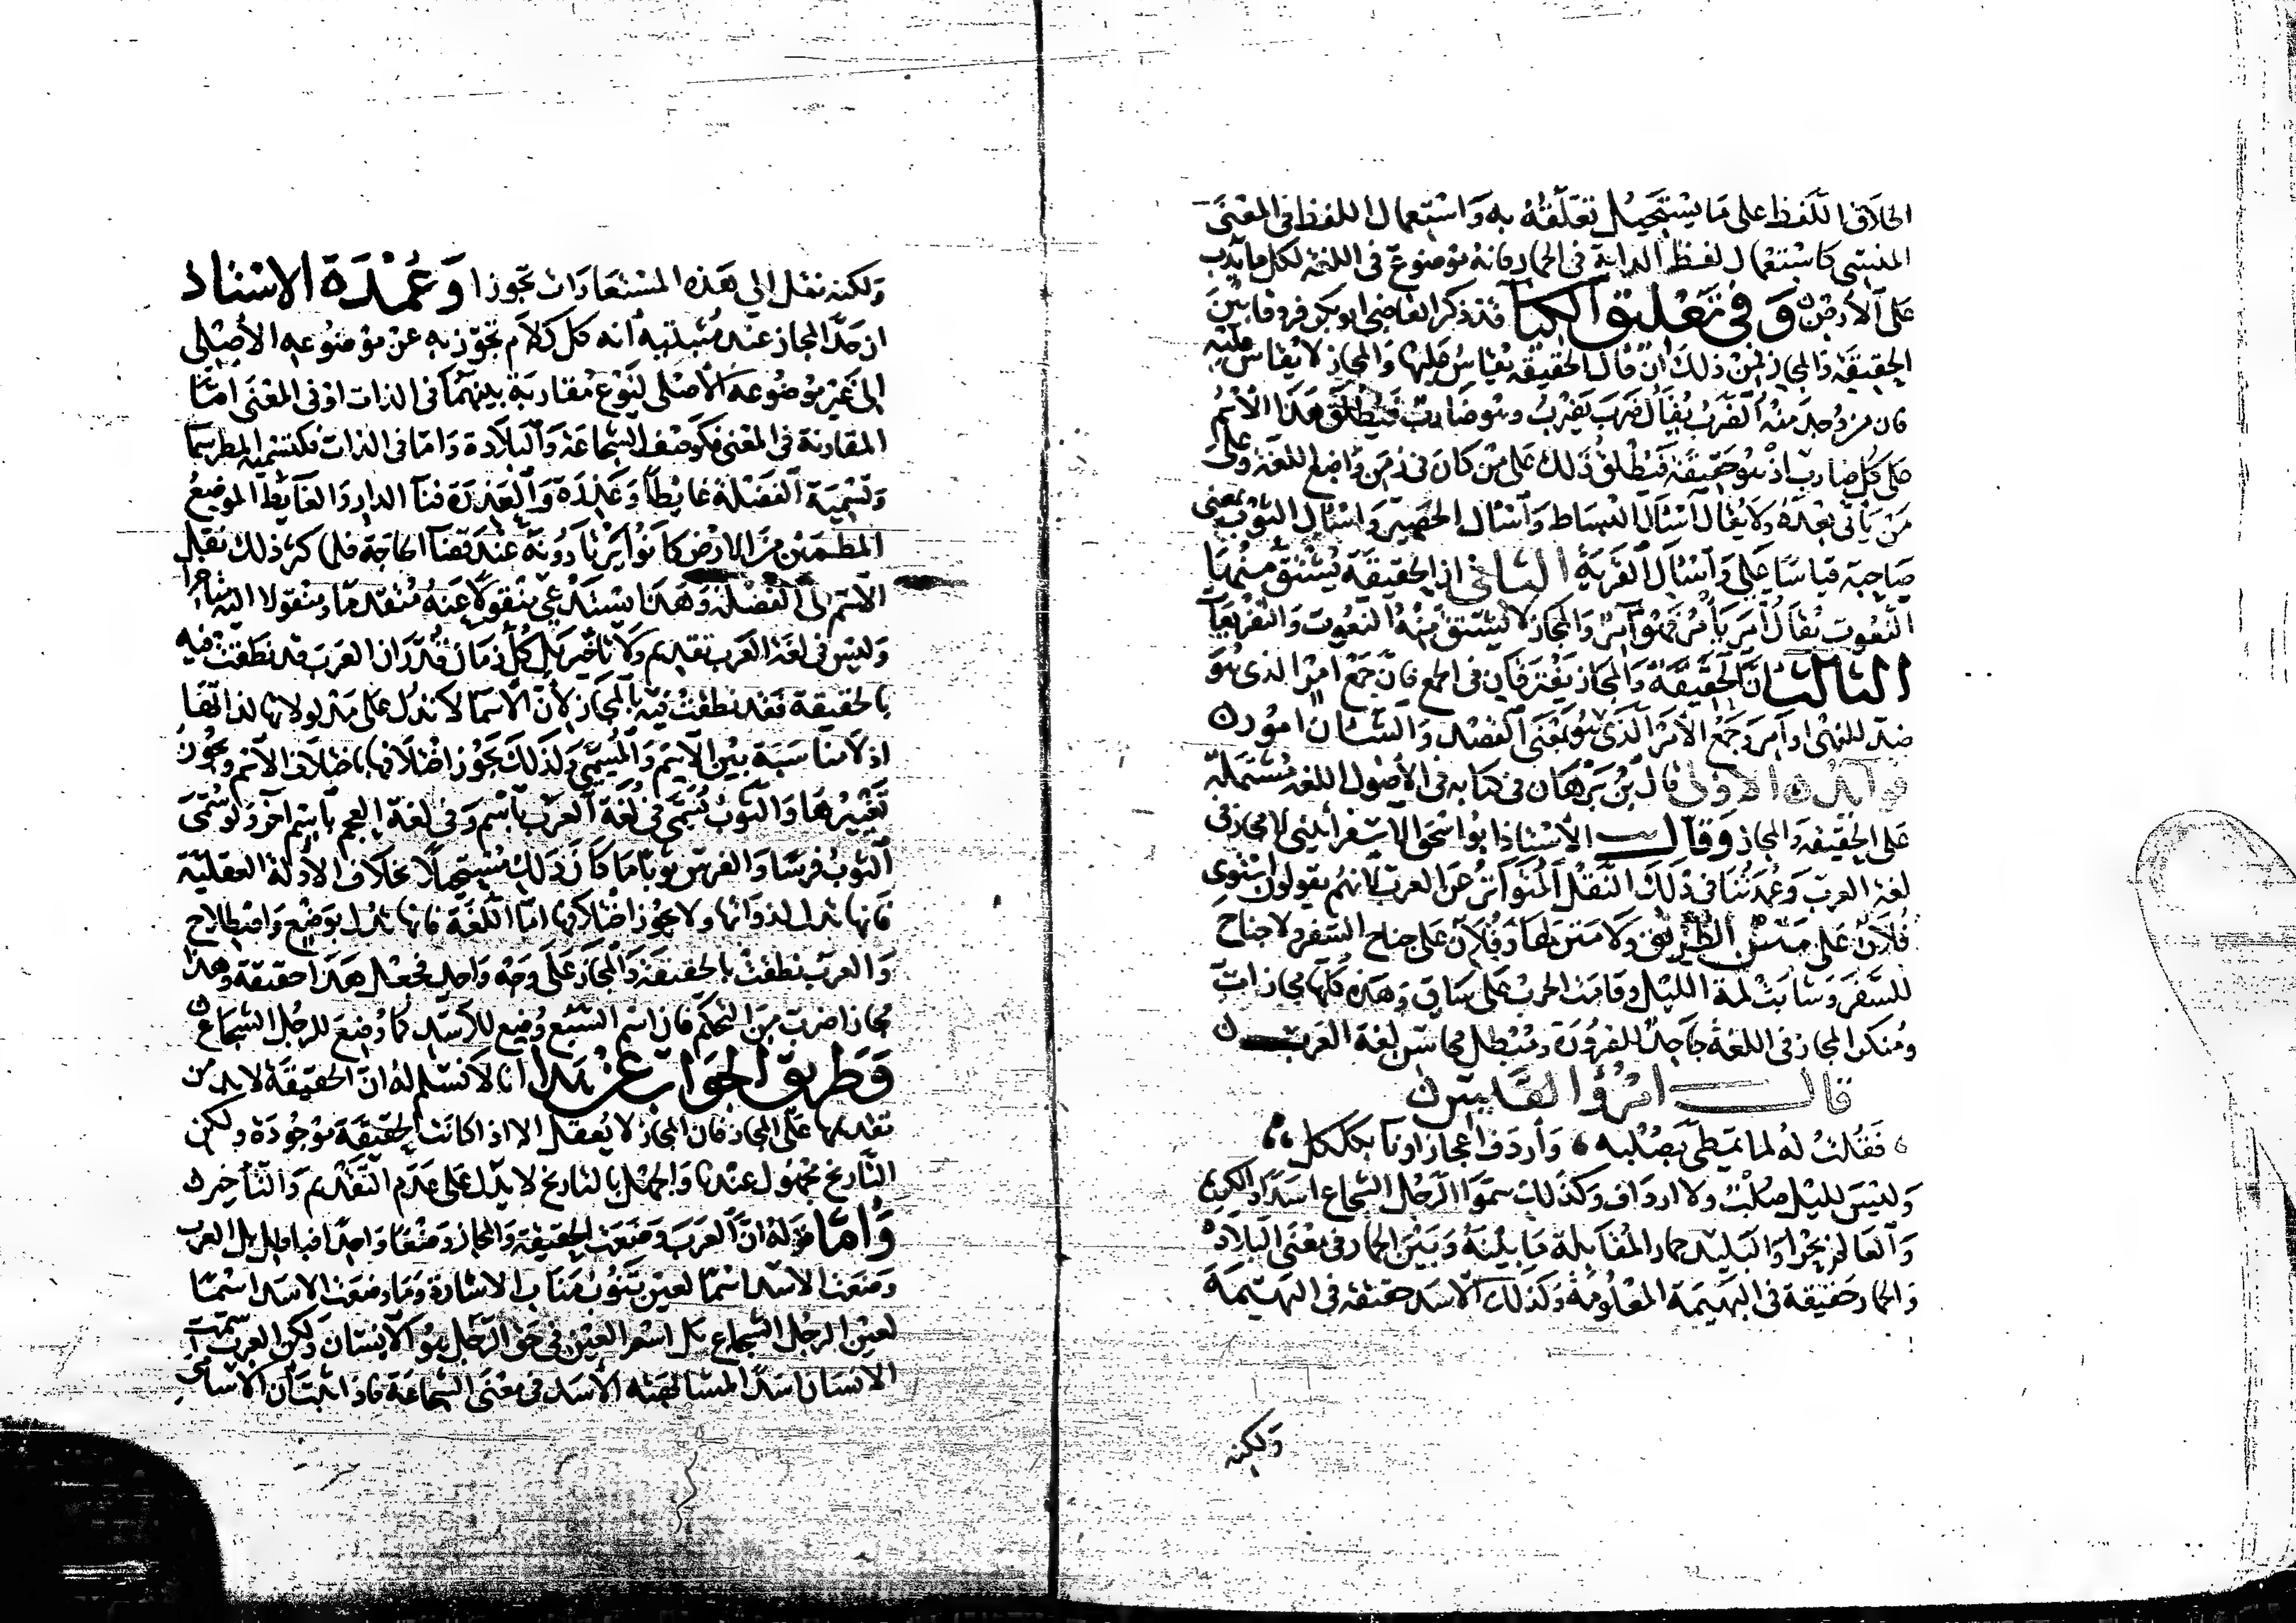 اطلاق اللفظ على ما يستحيل تعلقه به واستعمال اللفظ في المعنى
المنسي كاستعمال لفظ الدابة في الحمار فانه موضوع في اللغة لكل ما يدب
على الأرض وفي تعليق الكيا قد ذكر القاضي ابو بكر فروقا بين
الحقيقة والمجاز فمن ذلك ان قال الحقيقة يقاس عليها والمجاز لا يقاس عليه
فان من وجد منه الضرب يقال ضرب يضرب وهو ضارب فيطلق هذا الاسم
على كل ضارب اذ هو حقيقة فيطلق ذلك على من كان في زمن واضع اللغة وعلى
من يأتي بعده ولا يقال اسأل البساط واسأل الحصير واسأل الثوب بمعنى
صاحبه قياسا على واسأل القرية الثاني ان الحقيقة يشتق منها
النعوت يقال امر يأمر فهو آمر والمجاز لا يشتق منه النعوت والتفريعات
الثالث ان الحقيقة والمجاز يفترقان في الجمع فان جمع امر الذي هو
ضد للنهي اوامر وجمع الأمر الذي هو بمعنى القصد والشان امور
فائدة الاولى قال بن برهان في كتابه في الأصول اللغة مشتملة
على الحقيقة والمجاز وقال الأستاذ ابو اسحق الاسفرايني لا مجاز في
لغة العرب وعمدتنا في ذلك النقل المتواتر عن العرب لانهم يقولون استوى
فلان على متن الطريق ولا متن لها وفلان على جناح السفر ولا جناح
للسفر وشابت لمة الليل وقامت الحرب على ساق وهذه كلها مجازات
ومنكر المجاز في اللغة جاحد للضرورة ومبطل محاسن لغة العرب
قال امرؤ القيس
فقلت له لما تمطى بصلبه وأردف اعجازا وناء بكلكل
وليس لليل صلب ولا ارداف وكذلك سموا الرجل الشجاع اسدا والكريم
والعالم بحرا والبليد حمار المقابلة ما بينه وبين الحمار في معنى البلادة
والحمار حقيقة في البهيمة المعلومة وكذلك الأسد حقيقة في البهيمة
ولكنه
ولكنه نقل الى هذه المستعارات تجوزا وعمدة الاستاذ
ان حد المجاز عند مثبتيه انه كل كلام تجوز به عن موضوعه الأصلي
الى غير موضوعه الأصلي لنوع مقاربة بينهما في الذات او في المعنى اما
المقاربة في المعنى فكوصف الشجاعة والبلادة واما في الذات فكتسمية المطر سما
وتسمية الفضلة غايطا وعذرة والعذرة فناء الدار والغايط الموضع
المطمين من الارض كانوا يرتادونه عند قضاء الحاجة فلما كثر ذلك نقل
الاسم الى الفضلة وهذا يستدعي منقولا عنه متقدما ومنقولا اليه متاخرا
وليس في لغة العرب تقديم ولا تأخير بل كل زمان قدر ان العرب قد نطقت فيه
بالحقيقة فقد نطقت فيه بالمجاز لأن الاسما لا تدل على مدلولاتها لذاتها
اذ لا مناسبة بين الاسم والمسمى ولذلك يجوز اختلافها باختلاف الأمم ويجوز
تغييرها والثوب يسمى في لغة العرب باسم وفي لغة العجم باسم آخر ولو سمي
الثوب فرسا والفرس ثوبا ما كان ذلك مستحيلا بخلاف الأدلة العقلية
فانها تدل لذواتها ولا يجوز اختلافها اما اللغة فانها تدل بوضع واصطلاح
والعرب نطقت بالحقيقة والمجاز على وجه واحد فجعل هذا حقيقة وهذا
مجازا ضرب من التحكم فان اسم السبع وضع للأسد كما وضع للرجل الشجاع
وطريق الجواب عن هذا انا لا نسلم له ان الحقيقة لابد من
تقديمها على المجاز فان المجاز لا يعقل الا اذا كانت الحقيقة موجودة ولكن
التاريخ مجهول عندنا والجهل بالتاريخ لا يدل على عدم التقديم والتأخير
واما قوله ان العرب وضعت الحقيقة والمجاز وضعا واحدا فباطل بل العرب
وضعت الاسد اسما لعين تنوب مناب الاشارة وما وضعت الاسد اسما
لعين الرجل الشجاع بل اسم العين في حق الرجل هو الانسان ولكن العرب سمت
الانسان اسدا لمشابهته الأسد في معنى الشجاعة فاذا ثبت أن الاسامي